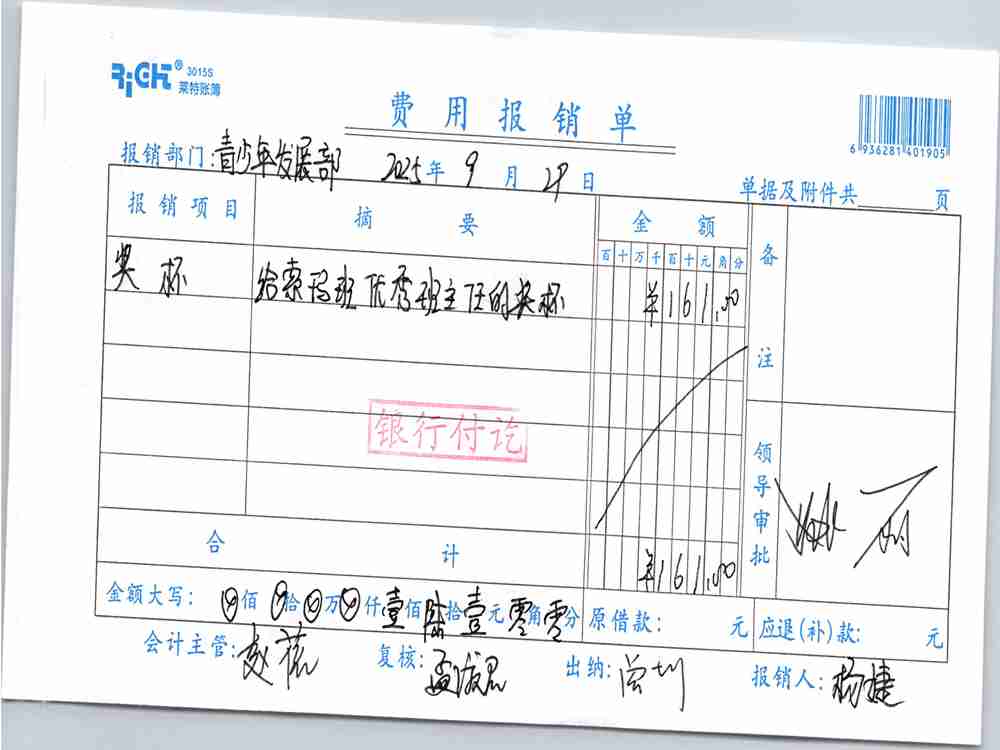 RiCHT® 3015S
莱特账簿
费用报销单
6 936281 401905
报销部门:青少年发展部 2025年9月29日
单据及附件共 页
报销项目 摘要 金额 备注
百十万千百十元角分
奖杯 给索玛班优秀班主任的奖杯 ¥161.00
银行付讫
领导审批
合计 ¥161.00
金额大写: 佰 拾 万 仟壹佰陆拾壹元零角零分 原借款: 元 应退(补)款: 元
会计主管: 复核: 出纳: 报销人:杨捷